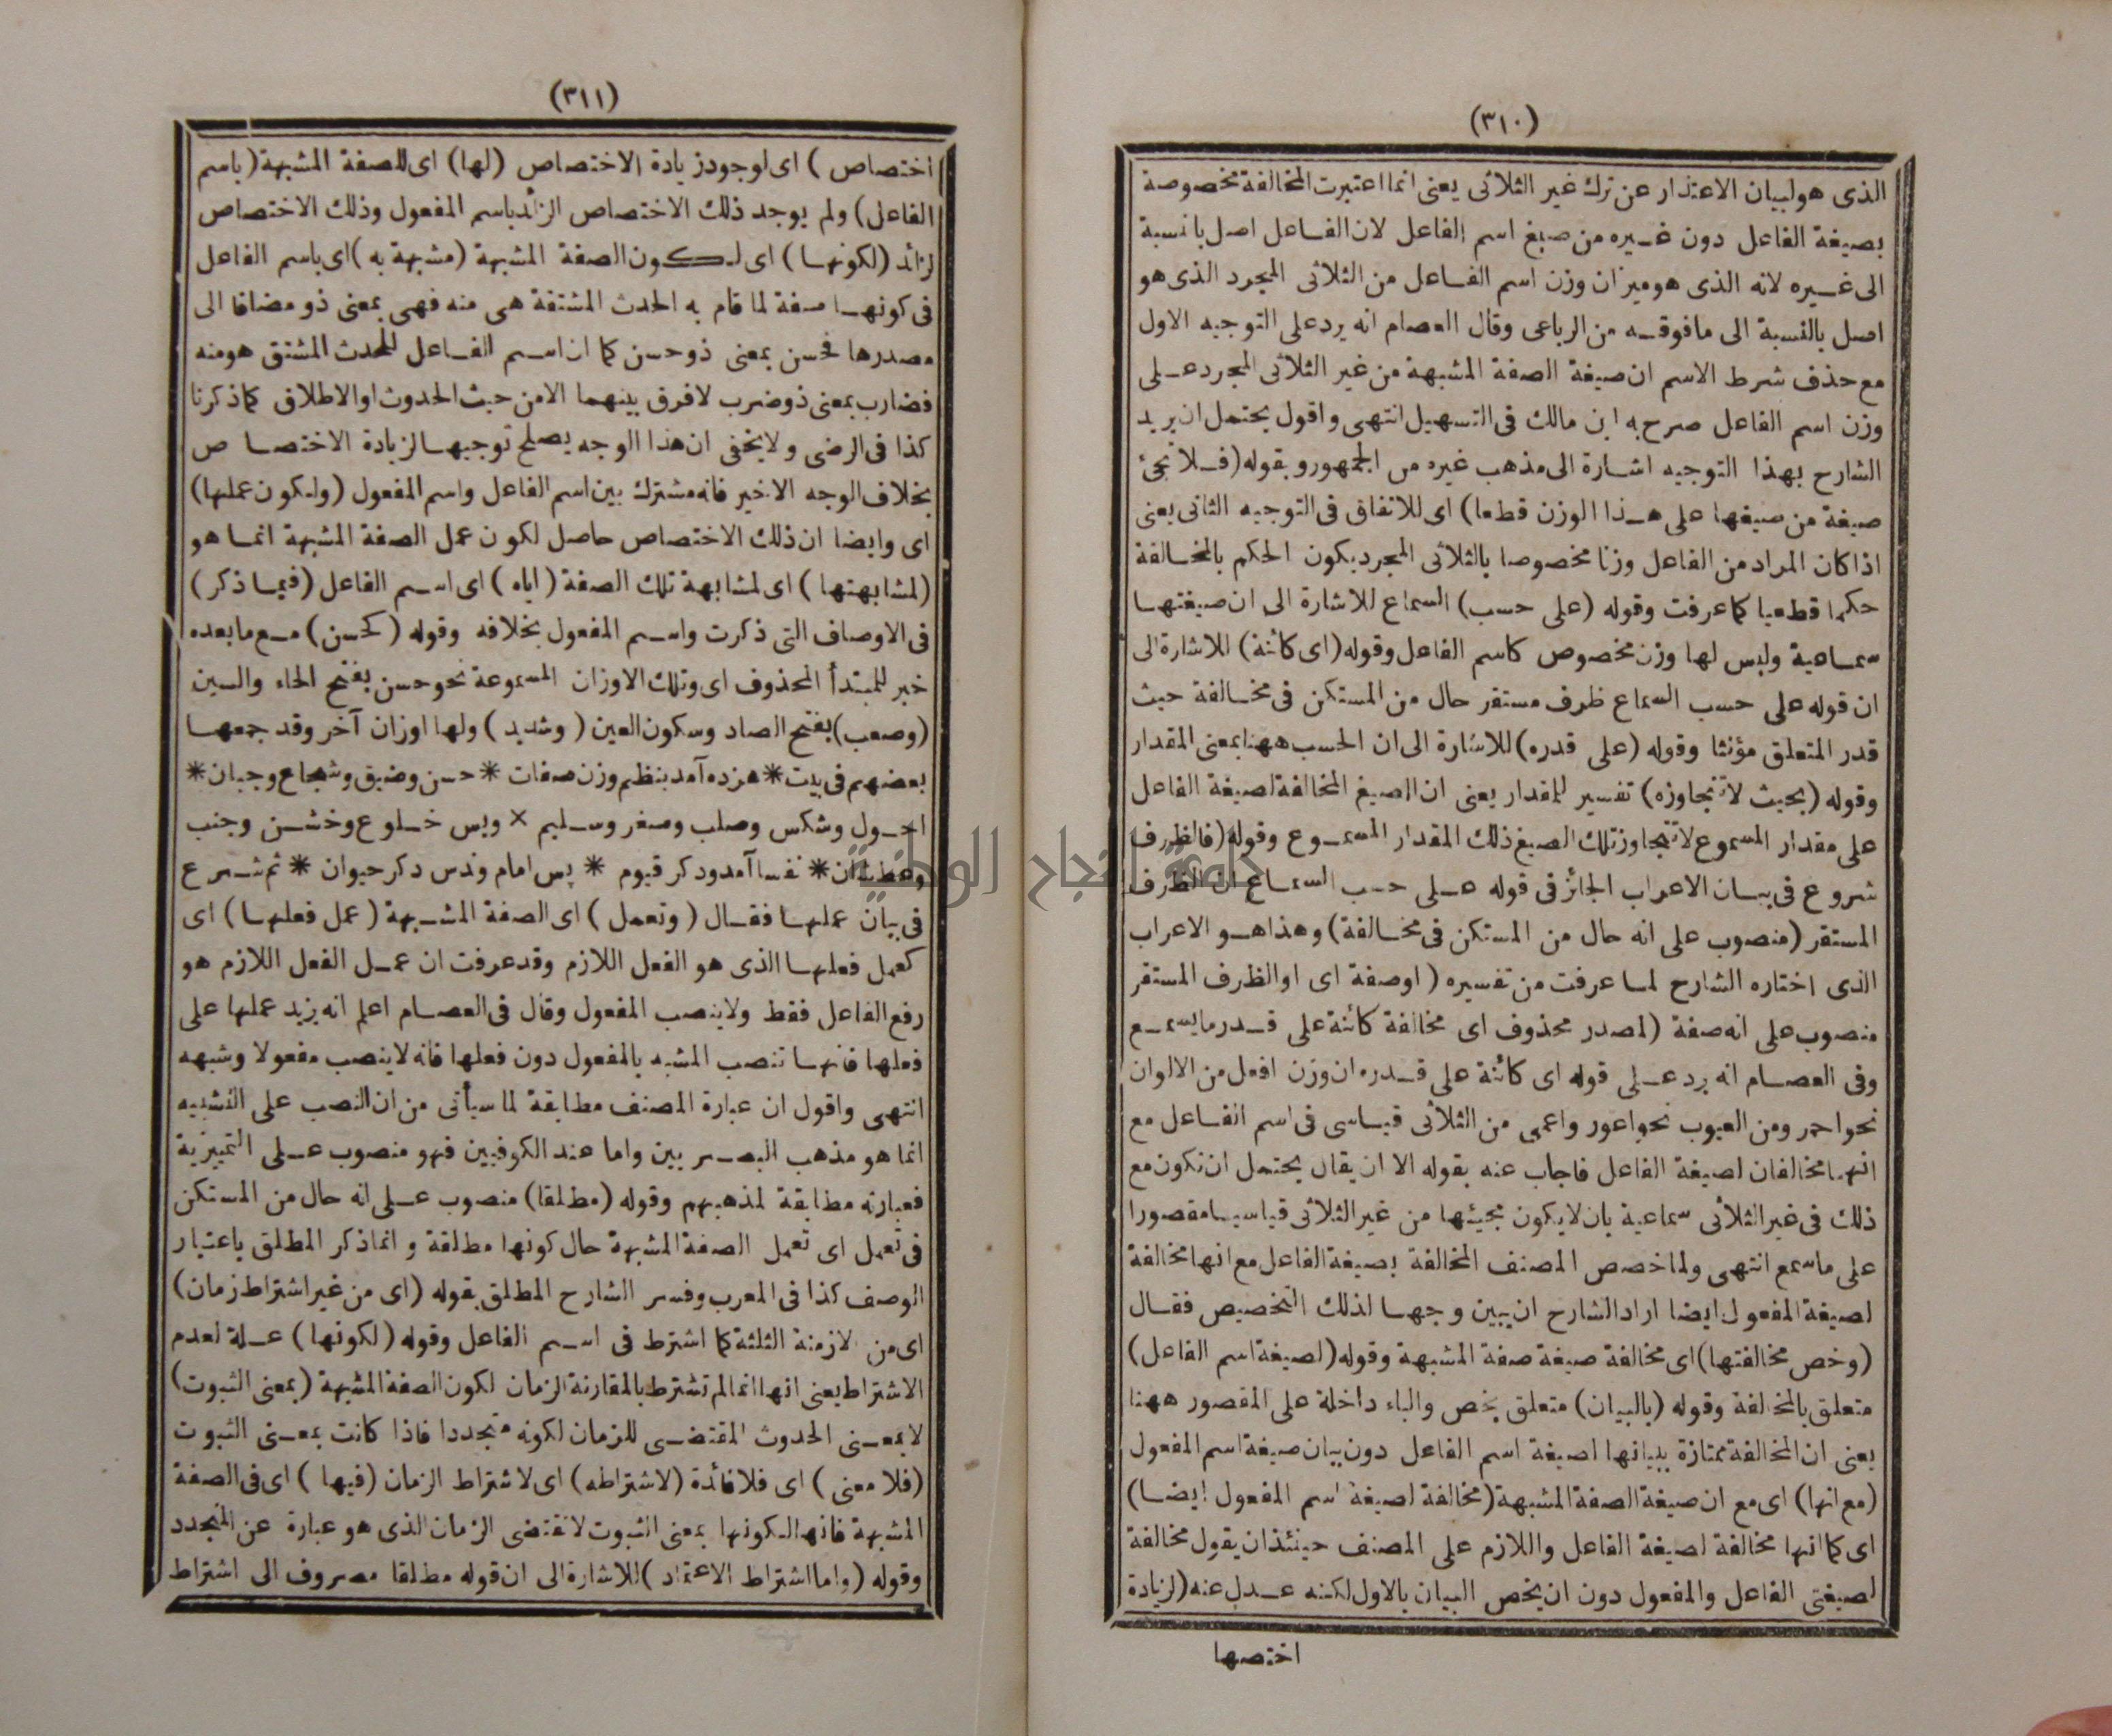 (٣١٠)
الذى هو لبيان الاعتذار عن ترك غير الثلاثى يعنى انما اعتبرت المخالفة مخصوصة
بصيغة الفاعل دون غيره من صيغ اسم الفاعل لان الفاعل اصل بالنسبة
الى غيره لانه الذى هو ميزان وزن اسم الفاعل من الثلاثى المجرد الذى هو
اصل بالنسبة الى مافوقه من الرباعى وقال العصام انه يرد على التوجيه الاول
مع حذف شرط الاسم ان صيغة الصفة المشبهة من غير الثلاثى المجرد على
وزن اسم الفاعل صرح به ابن مالك فى التسهيل انتهى واقول يحتمل ان يريد
الشارح بهذا التوجيه اشارة الى مذهب غيره من الجمهور وبقوله (فلا تجئ
صيغة من صيغها على هذا الوزن قطعا) اى للاتفاق فى التوجيه الثانى يعنى
اذا كان المراد من الفاعل وزنا مخصوصا بالثلاثى المجرد يكون الحكم بالمخالفة
حكما قطعيا كما عرفت وقوله (على حسب) السماع للاشارة الى ان صيغتها
سماعية وليس لها وزن مخصوص كاسم الفاعل وقوله (اى كائنة) للاشارة الى
ان قوله على حسب السماع ظرف مستقر حال من المستكن فى مخالفة حيث
قدر المتعلق مؤنثا وقوله (على قدره) للاشارة الى ان الحسب ههنا بمعنى المقدار
وقوله (بحيث لا تتجاوزه) تفسير للمقدار يعنى ان الصيغ المخالفة لصيغة الفاعل
على مقدار المسموع لا تتجاوز تلك الصيغ ذلك المقدار المسموع وقوله (فالظرف
شروع فى بيان الاعراب الجائز فى قوله على حسب السماع ان الظرف
المستقر (منصوب على انه حال من المستكن فى مخالفة) وهذا هو الاعراب
الذى اختاره الشارح لما عرفت من تفسيره (اوصفة اى او الظرف المستقر
منصوب على انه صفة (لمصدر محذوف اى مخالفة كائنة على قدر ما يسمع
وفى العصام انه يرد على قوله اى كائنة على قدره ان وزن افعل من الالوان
نحو احمر ومن العيوب نحو اعور واعمى من الثلاثى قياسى فى اسم الفاعل مع
انهما مخالفان لصيغة الفاعل فاجاب عنه بقوله الا ان يقال يحتمل ان تكون مع
ذلك فى غير الثلاثى سماعية بان لا يكون مجيئها من غير الثلاثى قياسيا مقصورا
على ما سمع انتهى ولما خصص المصنف المخالفة بصيغة الفاعل مع انها مخالفة
لصيغة المفعول ايضا اراد الشارح ان يبين وجها لذلك التخصيص فقال
(وخص مخالفتها) اى مخالفة صيغة صفة المشبهة وقوله (لصيغة اسم الفاعل)
متعلق بالمخالفة وقوله (بالبيان) متعلق بخص والباء داخلة على المقصور ههنا
يعنى ان المخالفة ممتازة ببيانها لصيغة اسم الفاعل دون بيان صيغة اسم المفعول
(مع انها) اى مع ان صيغة الصفة المشبهة (مخالفة لصيغة اسم المفعول ايضا)
اى كما انها مخالفة لصيغة الفاعل واللازم على المصنف حينئذ ان يقول مخالفة
لصيغتى الفاعل والمفعول دون ان يخص البيان بالاول لكنه عدل عنه (لزيادة
اختصها
(٣١١)
اختصاص) اى لوجود زيادة الاختصاص (لها) اى للصفة المشبهة (باسم
الفاعل) ولم يوجد ذلك الاختصاص الزائد باسم المفعول وذلك الاختصاص
زائد (لكونها) اى لكون الصفة المشبهة (مشبهة به) اى باسم الفاعل
فى كونها صفة لما قام به الحدث المشتقة هى منه فهى بمعنى ذو مضافا الى
مصدرها فحسن بمعنى ذو حسن كما ان اسم الفاعل للحدث المشتق هو منه
فضارب بمعنى ذو ضرب لا فرق بينهما الا من حيث الحدوث او الاطلاق كما ذكرنا
كذا فى الرضى ولا يخفى ان هذا الوجه يصلح توجيها لزيادة الاختصاص
بخلاف الوجه الاخير فانه مشترك بين اسم الفاعل واسم المفعول (ولكون عملها)
اى وايضا ان ذلك الاختصاص حاصل لكون عمل الصفة المشبهة انما هو
(لمشابهتها) اى لمشابهة تلك الصفة (اياه) اى اسم الفاعل (فيما ذكر)
فى الاوصاف التى ذكرت واسم المفعول بخلافه وقوله (كحسن) مع ما بعده
خبر للمبتدأ المحذوف اى وتلك الاوزان المسموعة نحو حسن بفتح الحاء والسين
(وصعب) بفتح الصاد وسكون العين (وشديد) ولها اوزان آخر وقد جمعها
بعضهم فى بيت * هزده آمد بنظم وزن صفات * حسن وضيق وشجاع وجبان *
احول وشكس وصلب وصفر وسليم × وبس خلوع وخشن وجنب
وعطشان * نفسا آمد ودكر قيوم * پس امام وندس دكر حيوان * ثم شرع
فى بيان عملها فقال (وتعمل) اى الصفة المشبهة (عمل فعلها) اى
كعمل فعلها الذى هو الفعل اللازم وقد عرفت ان عمل الفعل اللازم هو
رفع الفاعل فقط ولا ينصب المفعول وقال فى العصام اعلم انه يزيد عملها على
فعلها فانها تنصب المشبه بالمفعول دون فعلها فانه لا ينصب مفعولا وشبهه
انتهى واقول ان عبارة المصنف مطابقة لما سيأتى من ان النصب على التشبيه
انما هو مذهب البصريين واما عند الكوفيين فهو منصوب على التمييزية
فعبارته مطابقة لمذهبهم وقوله (مطلقا) منصوب على انه حال من المستكن
فى تعمل اى تعمل الصفة المشبهة حال كونها مطلقة وانما ذكر المطلق باعتبار
الوصف كذا فى المعرب وفسر الشارح المطلق بقوله (اى من غير اشتراط زمان)
اى من الازمنة الثلثة كما اشترط فى اسم الفاعل وقوله (لكونها) علة لعدم
الاشتراط يعنى انها انما لم تشترط بالمقارنة الزمان لكون الصفة المشبهة (بمعنى الثبوت)
لا بمعنى الحدوث المقتضى للزمان لكونه متجددا فاذا كانت بمعنى الثبوت
(فلا معنى) اى فلا فائدة (لاشتراطه) اى لاشتراط الزمان (فيها) اى فى الصفة
المشبهة فانها لكونها بمعنى الثبوت لا تقتضى الزمان الذى هو عبارة عن المتجدد
وقوله (واما اشتراط الاعتماد) للاشارة الى ان قوله مطلقا مصروف الى اشتراط
جامعة النجاح الوطنية